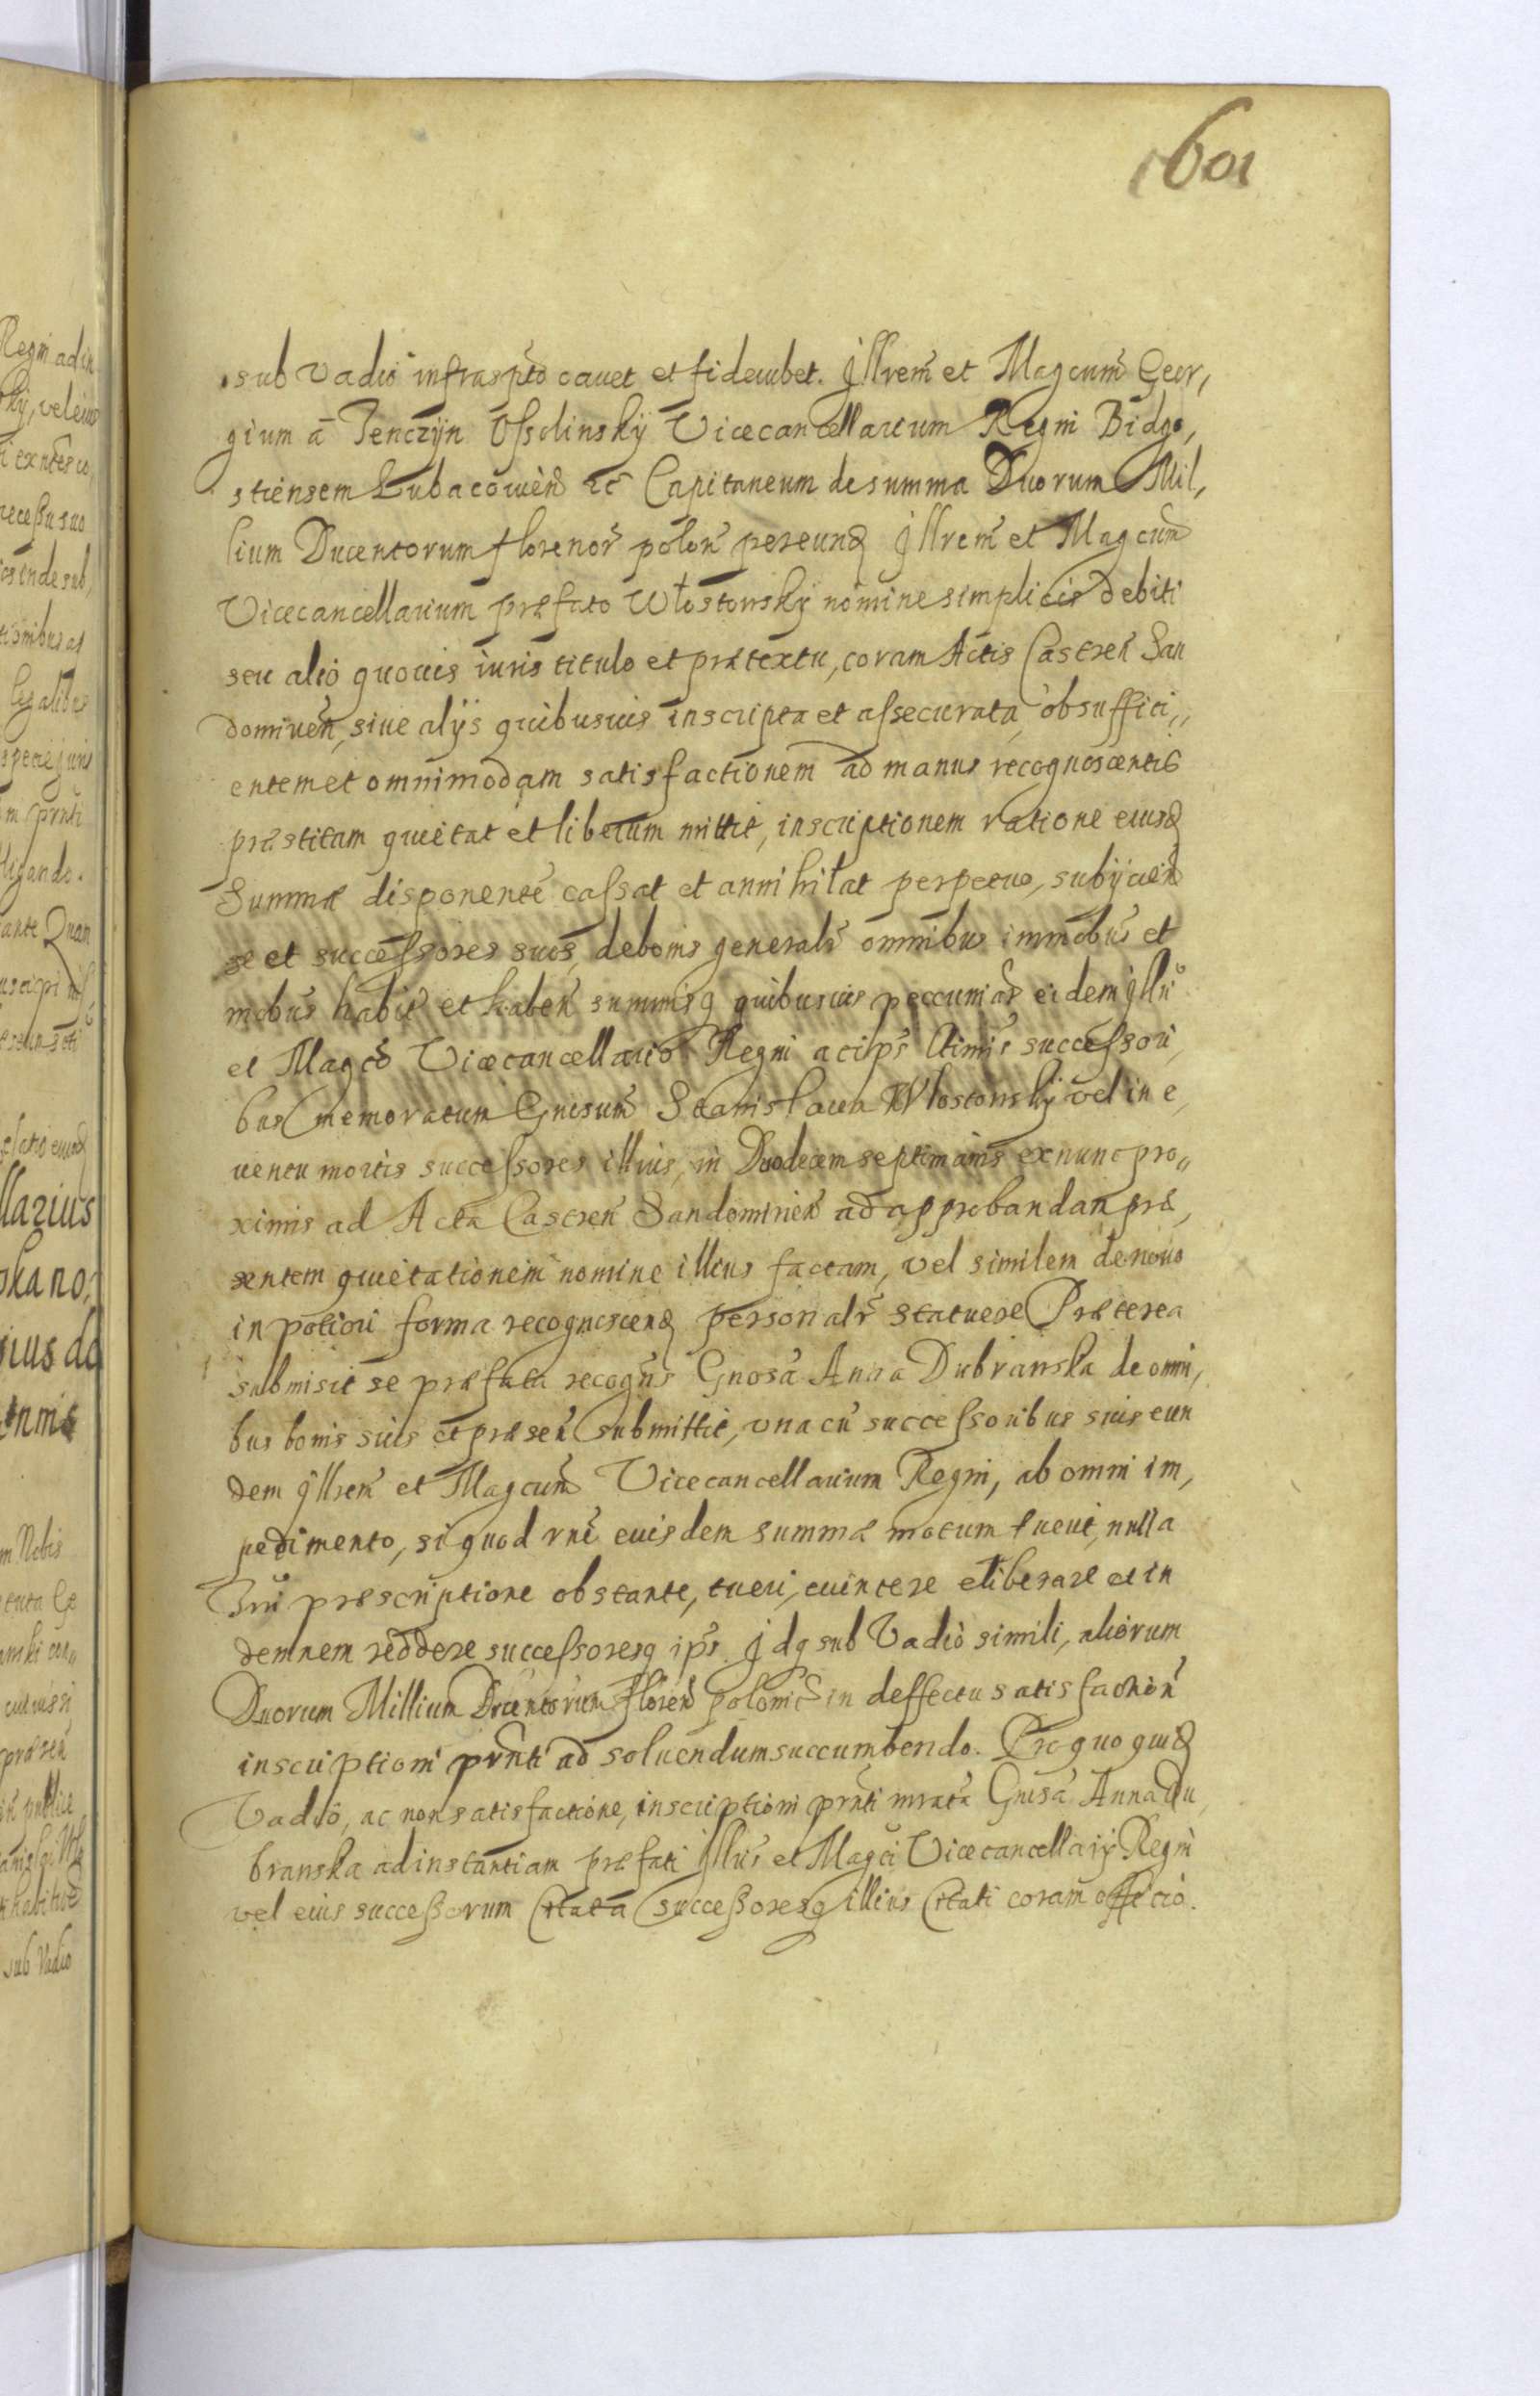 601
sub Vadio infraspto cauet et fideiubet. Jllrem et Magcum Geor,
gium à Tenczyn Ossolinskÿ Vicecancellarium Regni Bidgo,
stiensem Lubacowien etc Capitaneum de summa Duorum Mil,
lium Ducentorum florenor polon per eund Jllrem et Magcum
Vicecancellarium præfato Włostowsky nomine simplicis debiti
seu alio quouis iuris titulo et prætextu, coram Actis Castren San
domirien, siue alÿs quibusuis inscripta et assecurata, ob suffici,,
entem et omnimodam satisfactionem ad manus recognoscentis
præstitam quietat et liberum mittit, inscriptionem ratione eiusd
Summæ disponente cassat et annihilat perpetuo, subÿcien
se et successores suos, de bonis generalr omnibus immobus et
mobus habit et haben summisq quibusuis peccuniar eidem Jllri
et Magco Vicecancellario Regni ac ips ltimis successori,
bus memoratum Gnosum Stanislaum Włostowskÿ vel in e,
uentu mortis successores illius, in Duodecem septimanis ex nunc pro,,
ximis ad Acta Castren Sandomirien ad approbandam præ,
sentem quietationem nomine illius factam, vel similem de nouo
in potiori forma recognoscend personalr statuere Præterea
submisit se præfata recogns Gnosa Anna Dubranska de omni,
bus bonis suis et præsen submittit, vna cu successoribus suis eun
dem Jllrem et Magcum Vicecancellarium Regni, ab omni im,
pedimento, si quod rne euisdem summæ motum fuerit, nulla
Iuri præscriptione obstante, tueri, euincere eliberare et in
demnem reddere successoresq ips. Jdq sub Vadio simili, aliorum
Duorum Millium Ducentorum floren polonic in deffectu satisfaction
inscriptioni prnti ad soluendum succumbendo. Pro quo quid
Vadio, ac non satisfactione, inscriptioni prnti mrata Gnosa Anna Du,
branska ad instantiam præfati Jllris et Magci Vicecancellarÿ Regni
vel eius successorum Citata successoresq illius Citati coram officio.